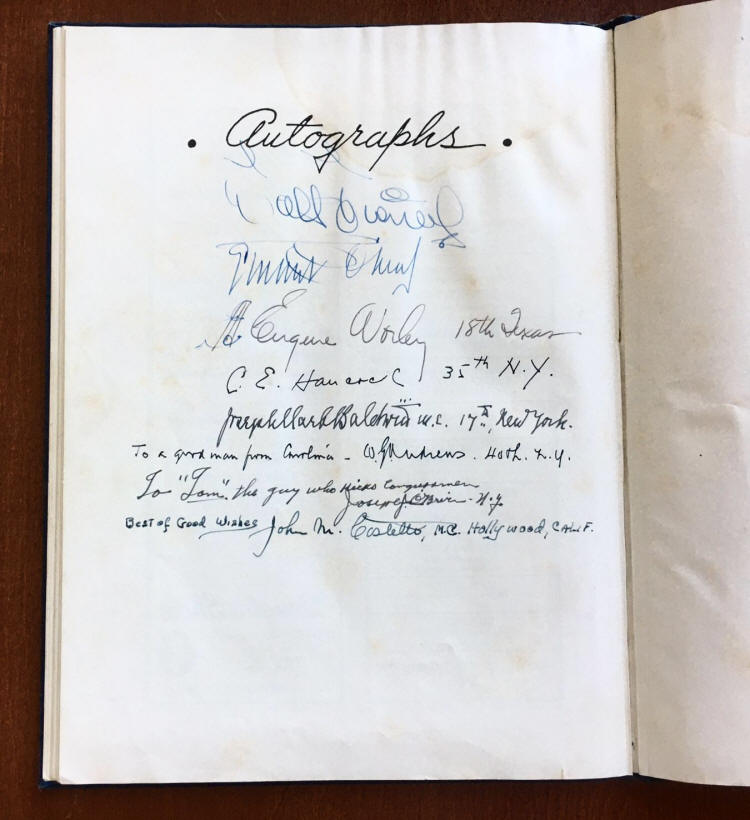 • Autographs •
Walt Disney
Eugene Worley 18th Texas
C. E. Hancock 35th N.Y.
Joseph Clark Baldwin M.C. 17th, New York.
To a good man from Carolina - W.G. Andrews. 40th. N.Y.
To "Tom", the guy who kicks Congressmen
Joseph J. O'Brien - N.Y.
Best of Good Wishes John M. Costello, M.C. Hollywood, Calif.